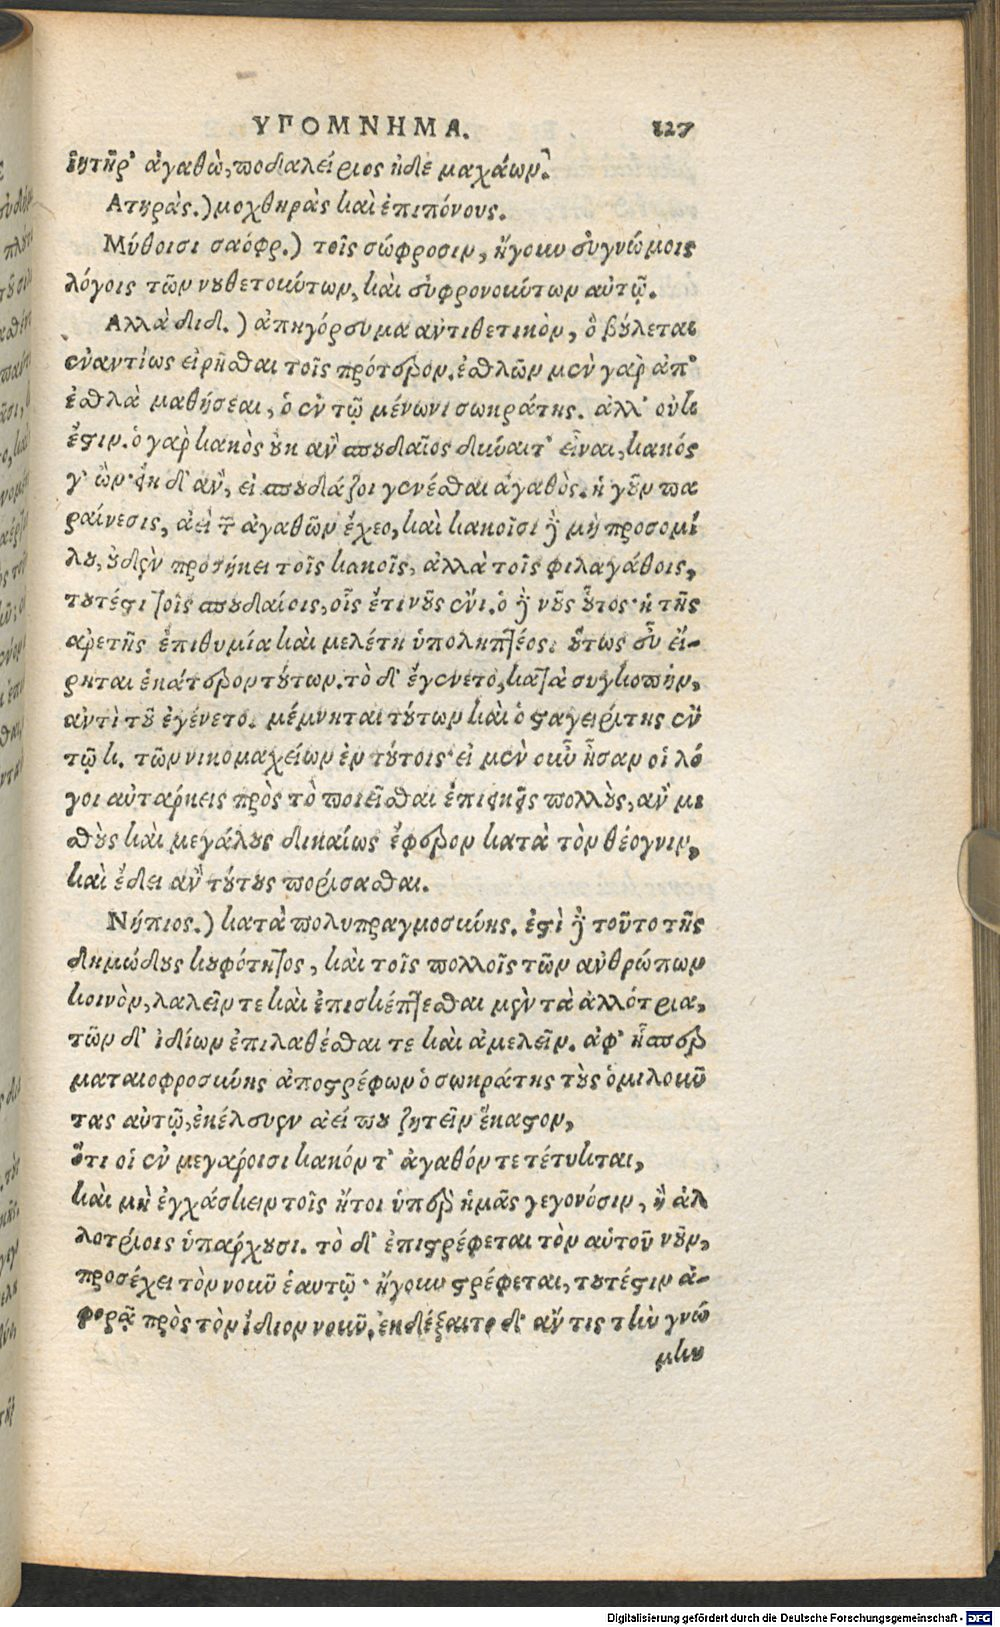 ΥΠΟΜΝΗΜΑ. 127
ἰητῆρ' ἀγαθὼ, ποδαλείριος ἠδὲ μαχάων.
Ατηρὰς.) μοχθηρὰς καὶ ἐπιπόνους.
Μύθοισι σαόφρ.) τοῖς σώφροσιν, ἤγουν εὐγνώμοις
λόγοις τῶν νουθετούντων, καὶ εὐφρονούντων αὐτῷ.
Αλλὰ διδ.) ἀπηγόρευμα ἀντιθετικὸν, ὃ βούλεται
ἐναντίως εἰρῆσθαι τοῖς πρότερον. ἐσθλῶν μὲν γὰρ ἀπ'
ἐσθλὰ μαθήσεαι, ὁ ἐν τῷ μένωνι σωκράτης. ἀλλ' οὐκ
ἔστιν. ὁ γὰρ κακὸς οὐκ ἂν σπουδαῖος δύναιτ' εἶναι, κακός
γ' ὤν· ἔη δ' ἂν, εἰ σπουδάζοι γενέσθαι ἀγαθὸς. ἡ γοῦν πα
ραίνεσις, ἀεὶ τῶν ἀγαθῶν ἔχεο, καὶ κακοῖσι δὲ μὴ προσομί
λου, οὐδὲν προσήκει τοῖς κακοῖς, ἀλλὰ τοῖς φιλαγάθοις,
τουτέστι τοῖς σπουδαίοις, οἷς ἔτι νοῦς ἔνι. ὁ δὲ νοῦς οὗτος· ἡ τῆς
ἀρετῆς ἐπιθυμία καὶ μελέτη ὑποληπτέος. οὕτως οὖν εἴ-
ρηται ἑκάτερον τούτων. τὸ δ' ἔγεντο, κατὰ συγκοπὴν,
ἀντὶ τοῦ ἐγένετο. μέμνηται τούτων καὶ ὁ σταγειρίτης ἐν
τῷ κ. τῶν νικομαχείων ἐν τούτοις· εἰ μὲν οὖν ἦσαν οἱ λό
γοι αὐτάρκεις πρὸς τὸ ποιεῖσθαι ἐπιεικεῖς πολλοὺς, ἂν μι
σθοὺς καὶ μεγάλους δικαίως ἔφερον κατὰ τὸν θέογνιν,
καὶ ἔδει ἂν τούτους πορίσασθαι.
Νήπιος.) κατὰ πολυπραγμοσύνης. ἐστὶ δὲ τοῦτο τῆς
δημώδους κουφότητος, καὶ τοῖς πολλοῖς τῶν ἀνθρώπων
κοινὸν, λαλεῖν τε καὶ ἐπισκέπτεσθαι μὲν τὰ ἀλλότρια,
τῶν δ' ἰδίων ἐπιλαθέσθαι τε καὶ ἀμελεῖν. ἀφ' ἧσπερ
ματαιοφροσύνης ἀποστρέφων ὁ σωκράτης τοὺς ὁμιλοῦν
τας αὐτῷ, ἐκέλευεν ἀεί που ζητεῖν ἕκαστον,
ὅτι οἱ ἐν μεγάροισι κακόν τ' ἀγαθόν τε τέτυκται,
καὶ μὴ ἐγχάσκειν τοῖς ἤτοι ὑπὲρ ἡμᾶς γεγονόσιν, ἢ ἀλ
λοτρίοις ὑπαρχουσι. τὸ δ' ἐπιστρέφεται τὸν αὑτοῦ νοῦν,
προσέχει τὸν νοῦν ἑαυτῷ· ἤγουν στρέφεται, τουτέστιν ἀ-
φορᾷ πρὸς τὸν ἴδιον νοῦν. ἐκδέξαιτο δ' ἄν τις τὴν γνώ
μην
Digitalisierung gefördert durch die Deutsche Forschungsgemeinschaft - DFG